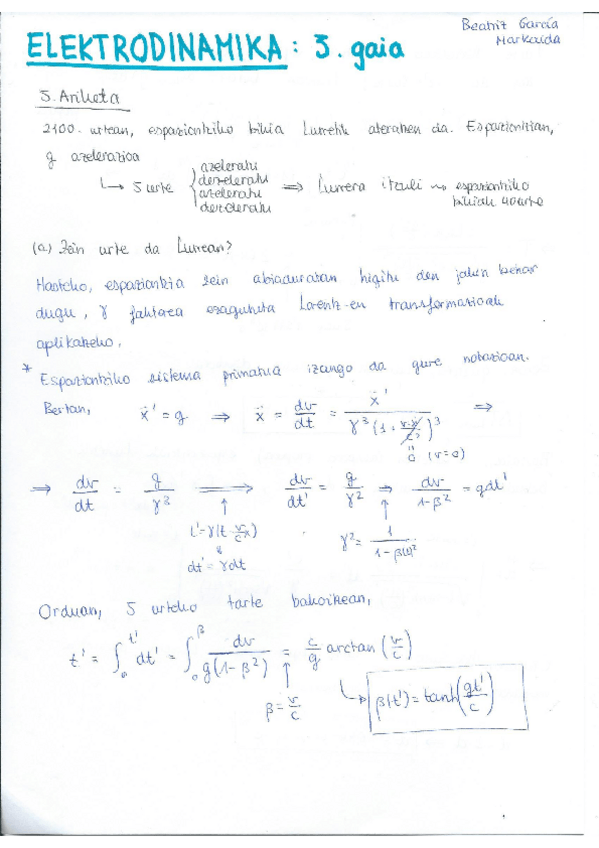 Beatriz García
Markaida
ELEKTRODINAMIKA: 3. gaia
5. Ariketa
2100. urtean, espaziontziko bikia Lurretik ateratzen da. Espaziontzian,
g azelerazioa
↳ 5 urte { azeleratu dezeleratu azeleratu dezeleratu ⇒ Lurrera itzuli ⇝ espaziontziko bikiak 40 urte
(a) Zein urte da Lurrean?
Hasteko, espaziontzia zein abiaduratan higitu den jakin behar
dugu, γ faktorea ezagututa Lorentz-en transformazioak
aplikatzeko.
* Espaziontziko sistema primatua izango da gure notazioan.
Bertan, ẍ' = g ⇒ ẍ = dv/dt = ẍ' / γ³(1 + v·ẋ'/c²)³ ⇒
0 (v=0)
⇒ dv/dt = g/γ³ → dv/dt' = g/γ² ⇒ dv/1-β² = gdt'
t' = γ(t - v/c x) γ² = 1/1-β(t)²
dt' = γdt
Orduan, 5 urteko tarte bakoitzean,
t' = ∫₀^t' dt' = ∫₀^β dv/g(1-β²) = c/g arctan(v/c)
β = v/c ↳ β(t') = tanh(gt'/c)